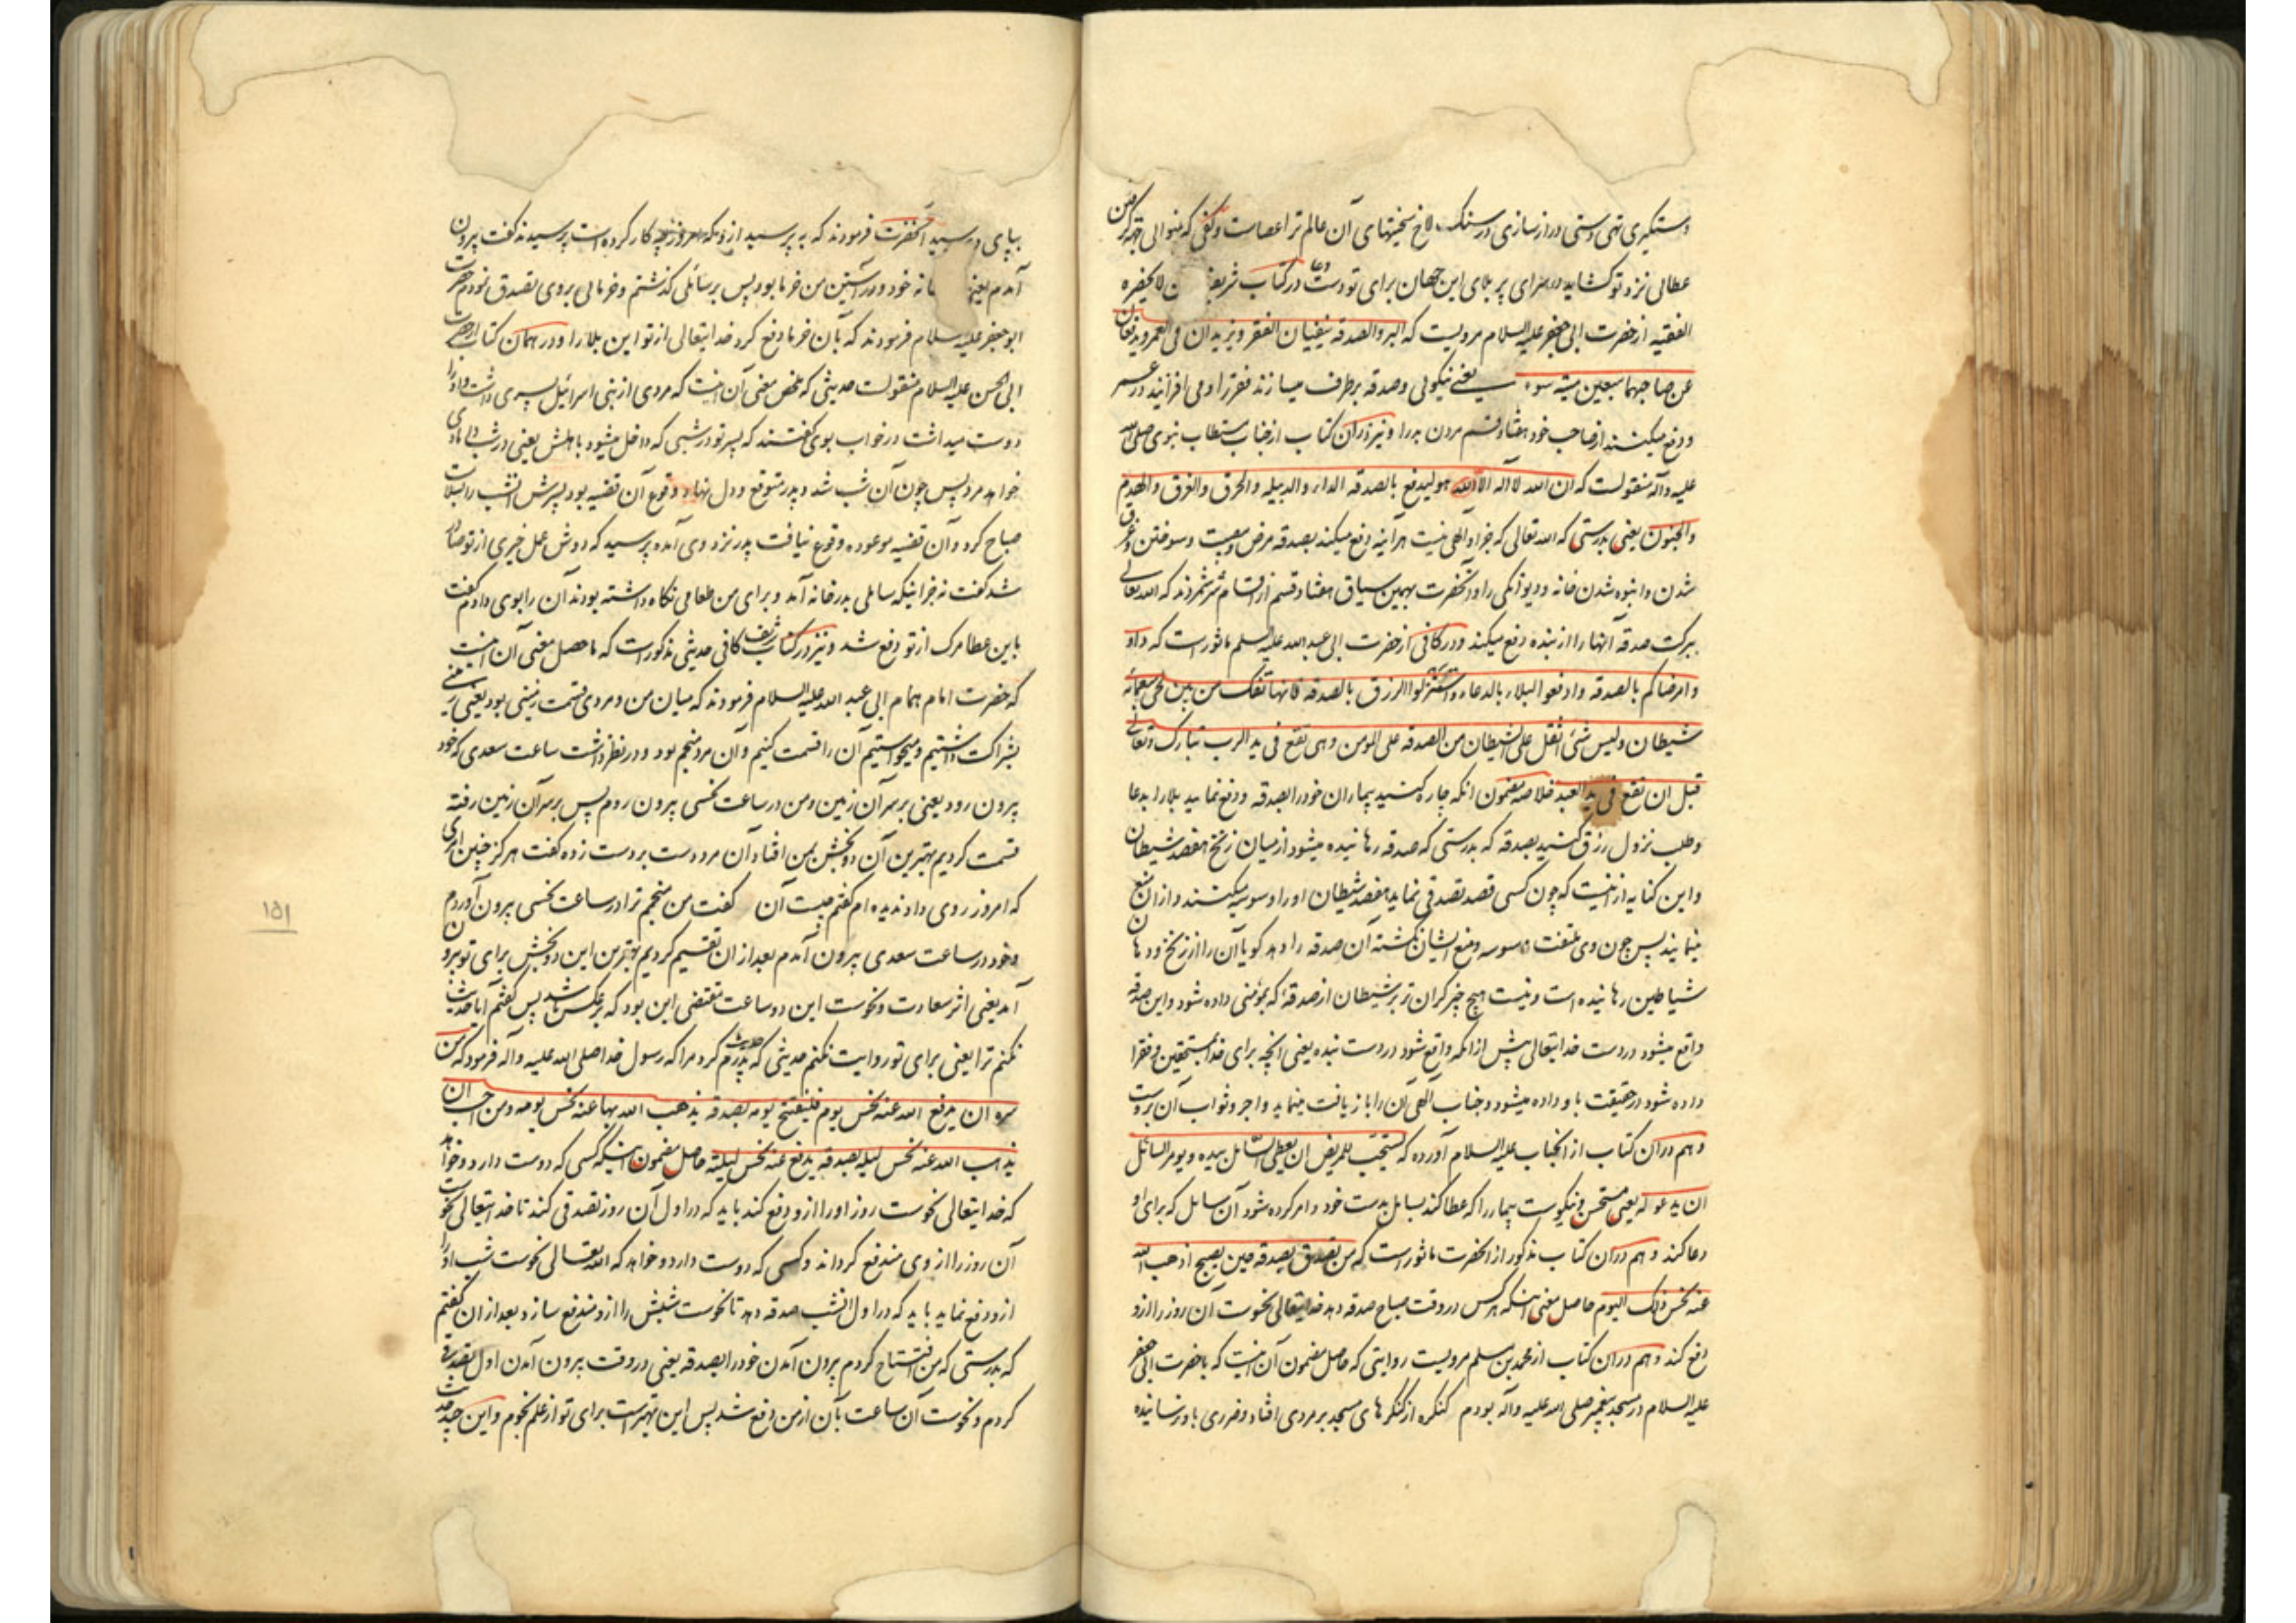 دستگیری تهی دستی دراز سازی در سنگ لاخ سختیهای آن عالم ترا عصاست و کفی که بنوالی جهة گرفتن
عطائی نزد تو گشاید در سرای پر بلای این جهان برای تو دست دعا در کتاب شریف من لا یحضره
الفقیه از حضرت ابی جعفر علیه السلام مرویست که البر والصدقه ینفیان الفقر و یزیدان فی العمر ویدفعان
عن صاحبهما سبعین میته سوء یعنی نیکوئی وصدقه برطرف میسازند فقر را و می افزایند در عمر
ودفع میکنند از صاحب خود هفتاد قسم مردن بد را و نیز در آن کتاب از جناب مستطاب نبوی صلی الله
علیه وآله منقولست که ان الله لا اله الا هو لیدفع بالصدقه الداء والدبیله والحرق والغرق والهدم
والجنون یعنی بدرستی که الله تعالی که جز او الهی نیست هر آینه دفع میکند بصدقه مرض ومصیبت وسوختن وغرق
شدن وانبوه شدن خانه ودیوانگی را وآنحضرت بهمین سیاق هفتاد قسم از اقسام شر شمردند که الله تعالی
ببرکت صدقه آنها را از بنده دفع میکند ودر کافی از حضرت ابی عبد الله علیه السلم ماثور است که داوو
وامرضاکم بالصدقه وادفعوا البلاء بالدعاء واستنزلوا الرزق بالصدقه فانها تفک من بین لحی سبعمائه
شیطان ولیس شئ اثقل علی الشیطان من الصدقه علی المومن وهی تقع فی ید الرب تبارک وتعالی
قبل ان تقع فی ید العبد خلاصه مضمون انکه چاره کنید بیماران خود را بصدقه ودفع نمایید بلا را بدعا
وطلب نزول رزق کنید بصدقه که بدرستی که صدقه رهانیده میشود از میان زنخ هفصد شیطان
واین کنایه از اینست که چون کسی قصد تصدقی نماید هفصد شیطان او را وسوسه میکنند و از ان منع
مینمایند پس چون وی ملتفت وسوسه ومنع ایشان نگشته آن صدقه را دهد گویا آن را از زنخ ودهان
شیاطین رهانیده است ونیست هیچ چیز گران تر بر شیطان از صدقه که بمؤمنی داده شود واین صدقه
واقع میشود در دست خدایتعالی پیش از انکه واقع شود در دست بنده یعنی انچه برای خدا بمستحقین وفقرا
داده شود در حقیقت باو داده میشود وجناب الهی آن را بازیافت مینماید واجر وثواب آن بر اوست
وهم در آن کتاب از انجناب علیه السلام آورده که یستحب للمریض ان یعطی السائل بیده ویومر السائل
ان یدعو له یعنی مستحسن ونیکوست بیمار را که عطا کند بسایل بدست خود وامر کرده شود آن سایل که برای او
دعا کند وهم در آن کتاب مذکور از انحضرت ماثور است که من تصدق بصدقه حین یصبح اذهب الله
عنه نحس ذلک الیوم حاصل معنی اینکه هر کس در وقت صباح صدقه دهد خدایتعالی نحوست آن روز را از و
دفع کند وهم در آن کتاب از محمد بن مسلم مرویست روایتی که حاصل مضمون آن اینست که باحضرت ابی جعفر
علیه السلام در مسجد پیغمبر صلی الله علیه وآله بودم کنگره از کنگرهای مسجد بر مردی افتاد وضرری باو نرسانیده
بپای رسید انحضرت فرمودند که بپرسید از و که امروز چه کار کرده است پرسیدند گفت بیرون
آمدم یعنی خانه خود و در آستین من خرما بود پس بر سائلی گذشتم وخرمائی بروی تصدق نمودم حضرت
ابو جعفر علیه السلام فرمودند که بآن خرما دفع کرد خدایتعالی از تو این بلا را ودر همان کتاب از حضرت
ابی الحسن علیه السلام منقولست حدیثی که ملخص معنی آن اینست که مردی از بنی اسرائیل پسری داشت واو را
دوست میداشت در خواب بوی گفتند که پسر تو در شبی که داخل میشود باهلش یعنی در شب دامادی
خواهد مرد پس چون آن شب شد وپدر متوقع ودل نهاد وقوع آن قضیه بود پسرش انشب را بسلامت
صباح کرد وآن قضیه موعوده وقوع نیافت پدر نزد وی آمده پرسید که دوش عمل خیری از تو صادر
شد گفت نه جز اینکه سائلی بدر خانه آمد وبرای من طعامی نگاه داشته بودند آن را بوی دادم گفت
باین عطا مرگ از تو دفع شد ونیز در کتاب شریف کافی حدیثی مذکور است که ماحصل معنی آن اینست
که حضرت امام همام ابی عبد الله علیه السلام فرمودند که میان من ومردی قسمت زمینی بود یعنی زمینی
بشراکت داشتیم ومیخواستیم آن را قسمت کنیم وآن مرد منجم بود ودر نظر داشت ساعت سعدی که خود
بیرون رود یعنی بر سر آن زمین ومن در ساعت نحسی بیرون روم پس بر سر آن زمین رفته
قسمت کردیم بهترین آن دو بخش بمن افتاد آن مرد دست بر دست زده گفت هرگز چنین امری
که امروز روی داد ندیده ام گفتم چیست آن گفت من منجم ترا در ساعت نحسی بیرون آوردم
وخود در ساعت سعدی بیرون آمدم بعد از ان تقسیم کردیم بهترین این دو بخش برای تو بیرون
آمد یعنی اثر سعادت ونحوست این دو ساعت مقتضی این بود که بر عکس باشد پس گفتم آیا حدیث
نکنم ترا یعنی برای تو روایت نکنم حدیثی که پدرم حدیث کرد مرا که رسول خدا صلی الله علیه وآله فرمود که من
سره ان یدفع الله عنه نحس یوم فلیفتتح یومه بصدقه یذهب الله بها عنه نحس یومه ومن احب ان
یذهب الله عنه نحس لیله بصدقه یدفع عنه نحس لیلته حاصل مضمون اینکه کسی که دوست دارد وخواهد
که خدایتعالی نحوست روز او را از و دفع کند باید که در اول آن روز تصدقی کند تا خدایتعالی نحوست
آن روز را از وی مندفع گرداند وکسی که دوست دارد وخواهد که الله تعالی نحوست شب او را
از و دفع نماید باید که در اول انشب صدقه دهد تا نحوست شبش را از و مندفع سازد وبعد از ان گفتم
که بدرستی که من افتتاح کردم بیرون آمدن خود را بصدقه یعنی در وقت بیرون آمدن اول تصدقی
کردم ونحوست آن ساعت بآن از من دفع شد پس این بهتر است برای تو از علم نجوم واین حدیث
۱۵۱